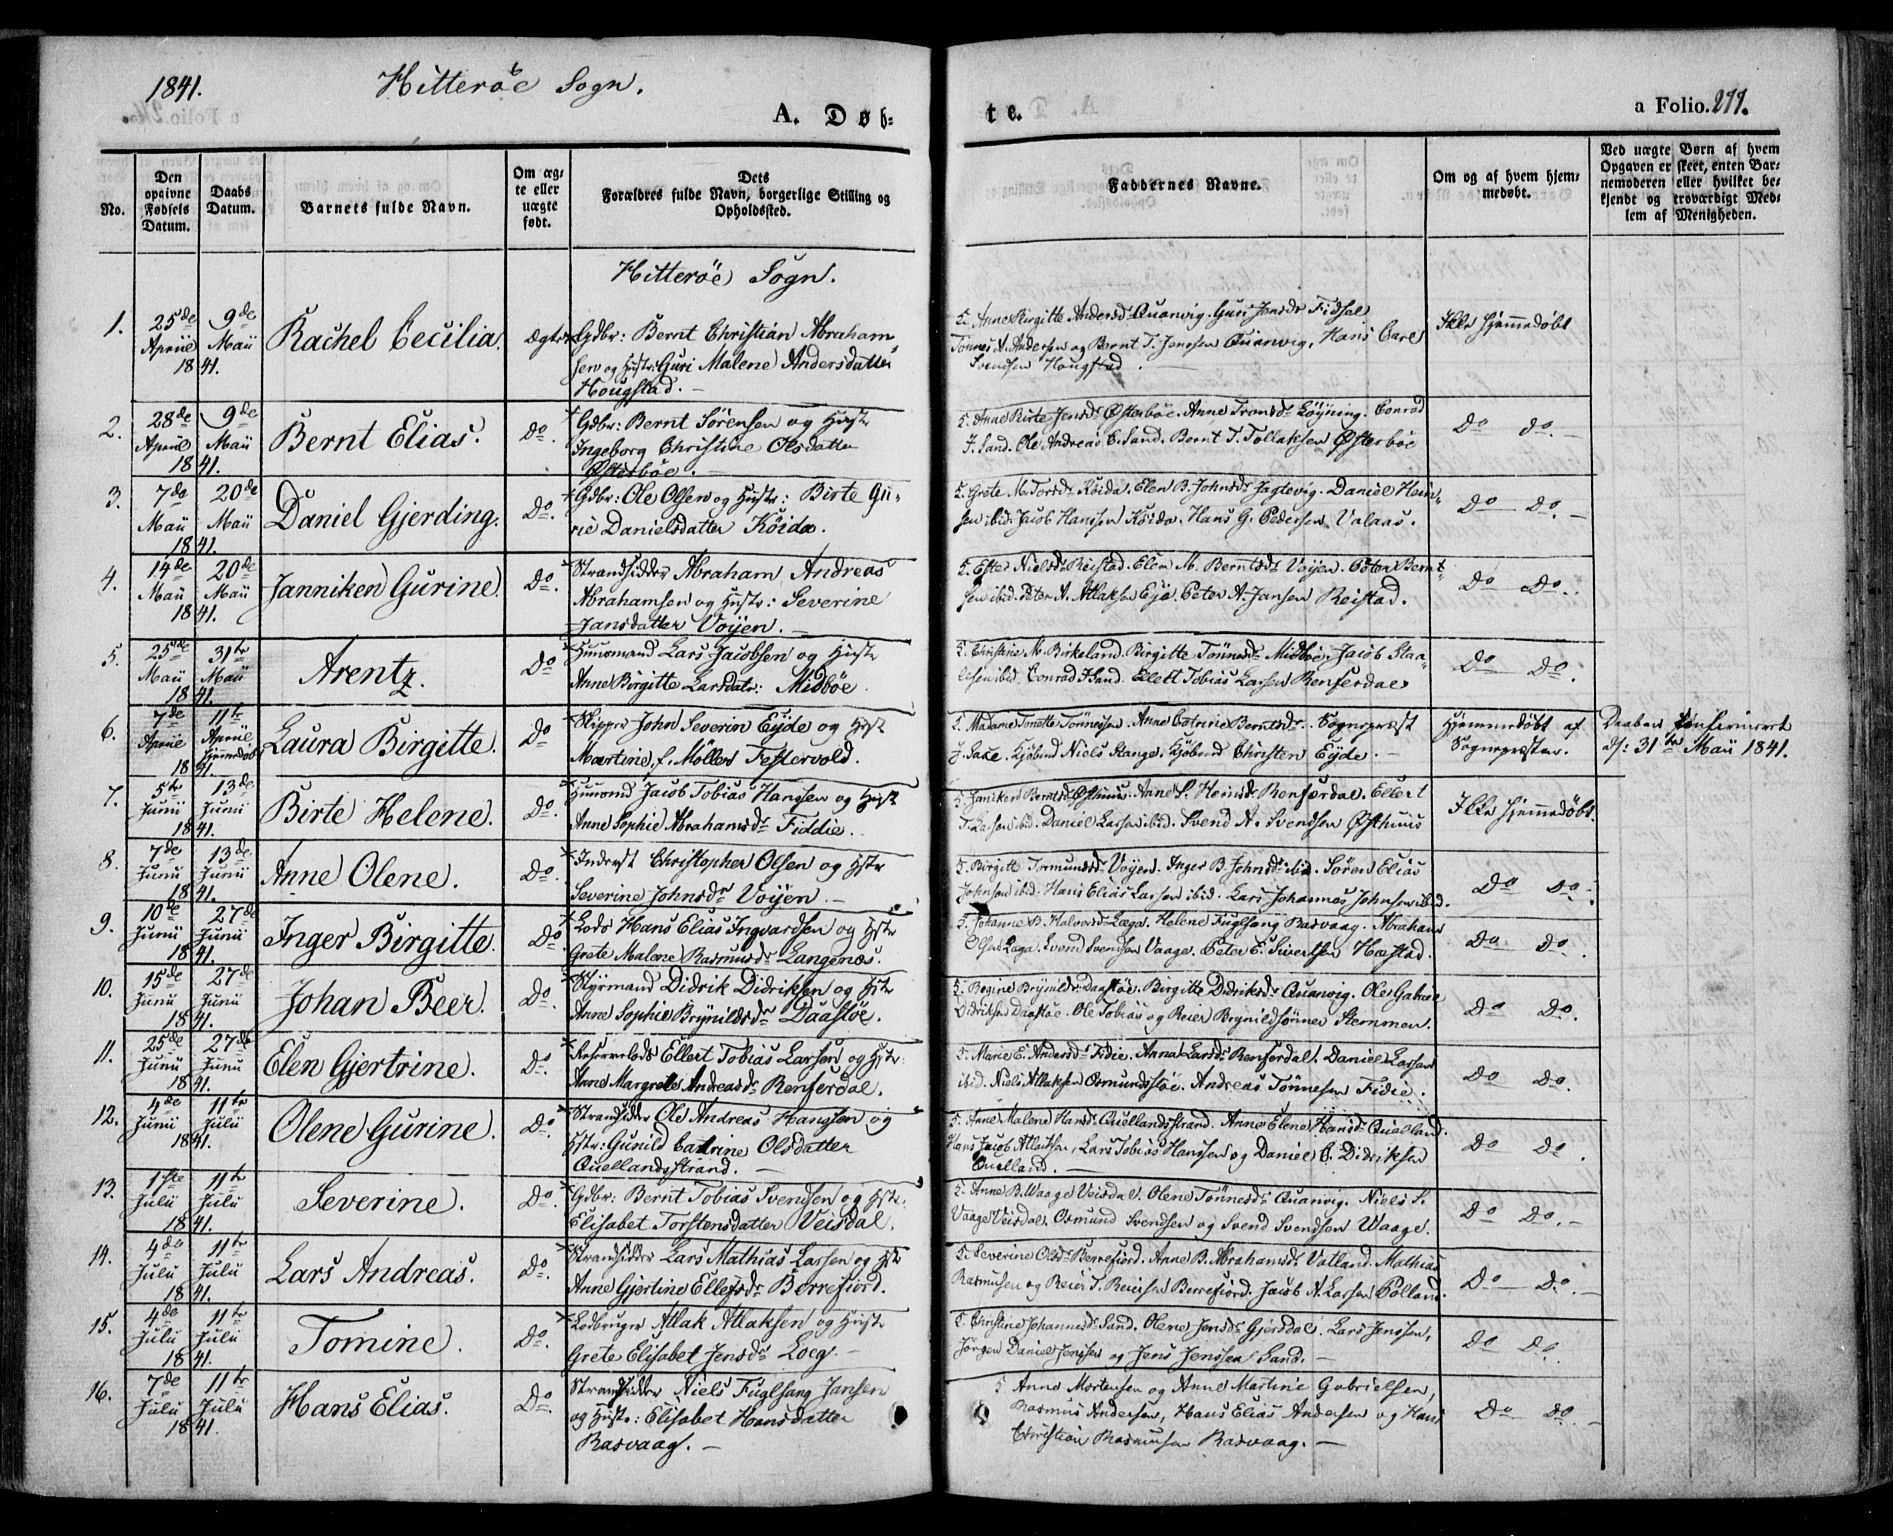 1841. Hitterøe Sogn.
A. Døb-
te.
a Folio. 277.
No.
Den opgivne Fødsels Datum.
Daabs Datum.
Barnets fulde Navn.
Om ægte eller uægte født.
Dets Forældres fulde Navn, borgerlige Stilling og Opholdssted.
Faddernes Navne.
Om og af hvem hjemmedøbt.
Ved uægte Børn af hvem Opgaven er skeet, enten Barnemoderen eller hvilket bekjendt og troværdigt Medlem af Menigheden.
Hitterøe Sogn.
1. 25de April 1841. 9de Maii Rachel Cecilia. ægte
Gdbr: Bernt Christian Abraham
sen og Hustr: Guri Malene Andersdatter
Hougstad.
5. Anne Birgitte Andersd: Quanvig. Guri Jensdr Fidsel
Tønnes A. Andersen og Bernt T. Jenssen Quanvig, Hans Carl
Svendsen Hougstad.
Ikke hjemmedøbt
2. 28de April 1841. 9de Maii Bernt Elias. Do.
Gdbr: Bernt Sørensen og Hustr
Ingeborg Christine Olsdatter
Østerbøe.
5. Anne Birte Jensdr Østerbøe. Anne Tronsdr Løyning. Conrad
J. Sand. Ole Andreas C. Sand. Bernt T. Tollaksen Østerbøe
Do Do.
3. 7de Maii 1841. 20de Maii Daniel Gjerding. Do.
Gdbr: Ole Olsen og Hustr: Birte Gu-
rie Danielsdatter Køida.
5. Grete M. Torsdr Køida. Elen B. Johnsdr Jagtevig. Daniel Hein-
sen ibid. Jacob Hanssen Køida. Hans G. Pedersen Valaas.
Do Do.
4. 14de Maii 1841. 20de Maii Janniken Gurine. Do.
Strandsidder Abraham Andreas
Abrahamsen og Hustr: Severine
Jansdatter Voijen.
5. Ester Nielsdr Reistad. Elen M. Berntsdr Voijen. Peter Bernt-
sen ibid. Peter A. Atlaksen Eje. Peter A. Jansen Reistad.
Do Do.
5. 25de Maii 1841. 31te Maii Arentz. Do
Huusmand Lars Jacobsen og Hustr
Anne Birgitte Larsdatr: Midbøe.
5. Christine M. Birkeland. Birgitte Tønnesdr Midbøe. Jacob Staa-
lesen ibid. Conrad J Sand. Ellert Tobias Larsen Rensferdal
Do Do.
6. 7de April 1841. 11te April hjemmedøbt Laura Birgitte. Do
Skipper John Severin Eyde og Hst
Martine f. Møller Festervold.
5. Madame Tonette Tønnesen. Anne Catrine Berntsdr. Sognepræst
J. Saxe. Kjøbmd Niels Stange. Kjøbmd Christen Eyde.
Hjemmedøbt af
Sognepræsten.
Daaben confirmeret
d: 31te Maii 1841.
7. 5te Junii 1841. 13de Junii Birte Helene. Do.
Huusmd Jacob Tobias Hanssen og Hust
Anne Sophie Abrahamsdr Fiddie.
5. Janiken Berntsdr Østhuus. Anne S. Heinsdr Rensferdal. Ellert
T. Larsen ibid. Daniel Larsen ibid. Svend A. Svendsen Østhuus
Ikke hjemmedøbt.
8. 7de Junii 1841. 13de Junii Anne Olene. Do.
Inderst Christopher Olsen og Hstr
Severine Johnsdr Voijen.
5. Birgitte Tormundsdr Voijen. Inger B. Johnsdr ibid. Søren Elias
Johnsen ibid. Hans Elias Larsen ibid. Lars Johannes Johnsen ibid.
Do Do.
9. 10de Junii 1841. 27de Junii Inger Birgitte. Do
Lods Hans Elias Ingvardsen og Hstr
Grete Malene Rasmusdr Langenæs.
5. Johanne B. Halvorsdr Læga. Helene Fuglsang Rasvaag. Abraham
Olsen Læga. Svend Svendsen Vaage. Peter E. Sivertsen Hæstad.
Do Do.
10. 15de Junii 1841. 27de Junii Johan Beer. Do.
Styrmand Didrik Didriksen og Hstr
Anne Sophie Brynildsdr Daastøe.
5. Regine Brynildsdr Daastøe. Birgitte Didriksdr Quanvig. Ole Gabriel
Didriksen Daastøe. Ole Tobias og Reier Brynildsønner Stemmen.
Do Do.
11. 25de Junii 1841. 27de Junii Elen Gjertrine. Do.
Reservelods Ellert Tobias Larsen og Hstr
Anne Margrete Andreasdr Rensferdal.
5. Marie E. Andersdr Fidie. Anna Larsdr Rensferdal. Daniel Larsen
ibid. Niels Atlaksen Osmundstøe. Andreas Tønnesen Fidie.
Do Do.
12. 4de Junii 1841. 11te Julii Olene Gurine. Do.
Strandsidder Ole Andreas Hanssen og
Hstr: Gunild Catrine Olsdatter
Quellandsstrand.
5. Anne Malene Hansdr Quellandsstrand. Anne Elene Hansdr Quelland.
Hans Jacob Atlaksen, Lars Tobias Hanssen og Daniel C. Didriksen
Quelland.
Do Do.
13. 1ste Julii 1841. 11te Julii Severine. Do.
Gdbr: Bernt Tobias Svendsen og Hstr.
Elisabet Torstensdatter Veisdal.
5. Anne B. Waage Veisdal. Olene Tønnesdr Quanvig. Niels S.
Vaage Veisdal. Osmund Svendsen og Svend Svendsen Waage.
Do Do.
14. 4de Julii 1841. 11te Julii Lars Andreas. Do.
Strandsidder Lars Mathias Larsen og Hst
Anne Gjertine Ellefsdr Berrefiord.
5. Severine Olsdr Berrefiord. Anne B. Abrahamsdr Vatland. Mathias
Rasmussen og Reier T. Reiersen Berrefiord. Jacob A. Larsen Polland.
Do Do.
15. 4de Julii 1841. 11te Julii Tomine. Do.
Lodbruger Atlak Atlaksen og Hustr
Grete Elisabet Jensdr Loeg.
5. Christine Johannesdr Sand. Olene Jensdr Gjersdal. Lars Jenssen,
Jørgen Daniel Jenssen og Jens Jenssen Sand.
Do Do.
16. 7de Julii 1841. 11te Julii Hans Elias. Do.
Strandsidder Niels Fuglsang Jansen
og Hustr: Elisabet Hansdatter
Rasvaag.
5 Anne Mortensen og Anne Martine Gabrielsen,
Rasmus Andersen, Hans Elias Andersen og Hans
Christian Rasmussen Rasvaag.
Do Do.